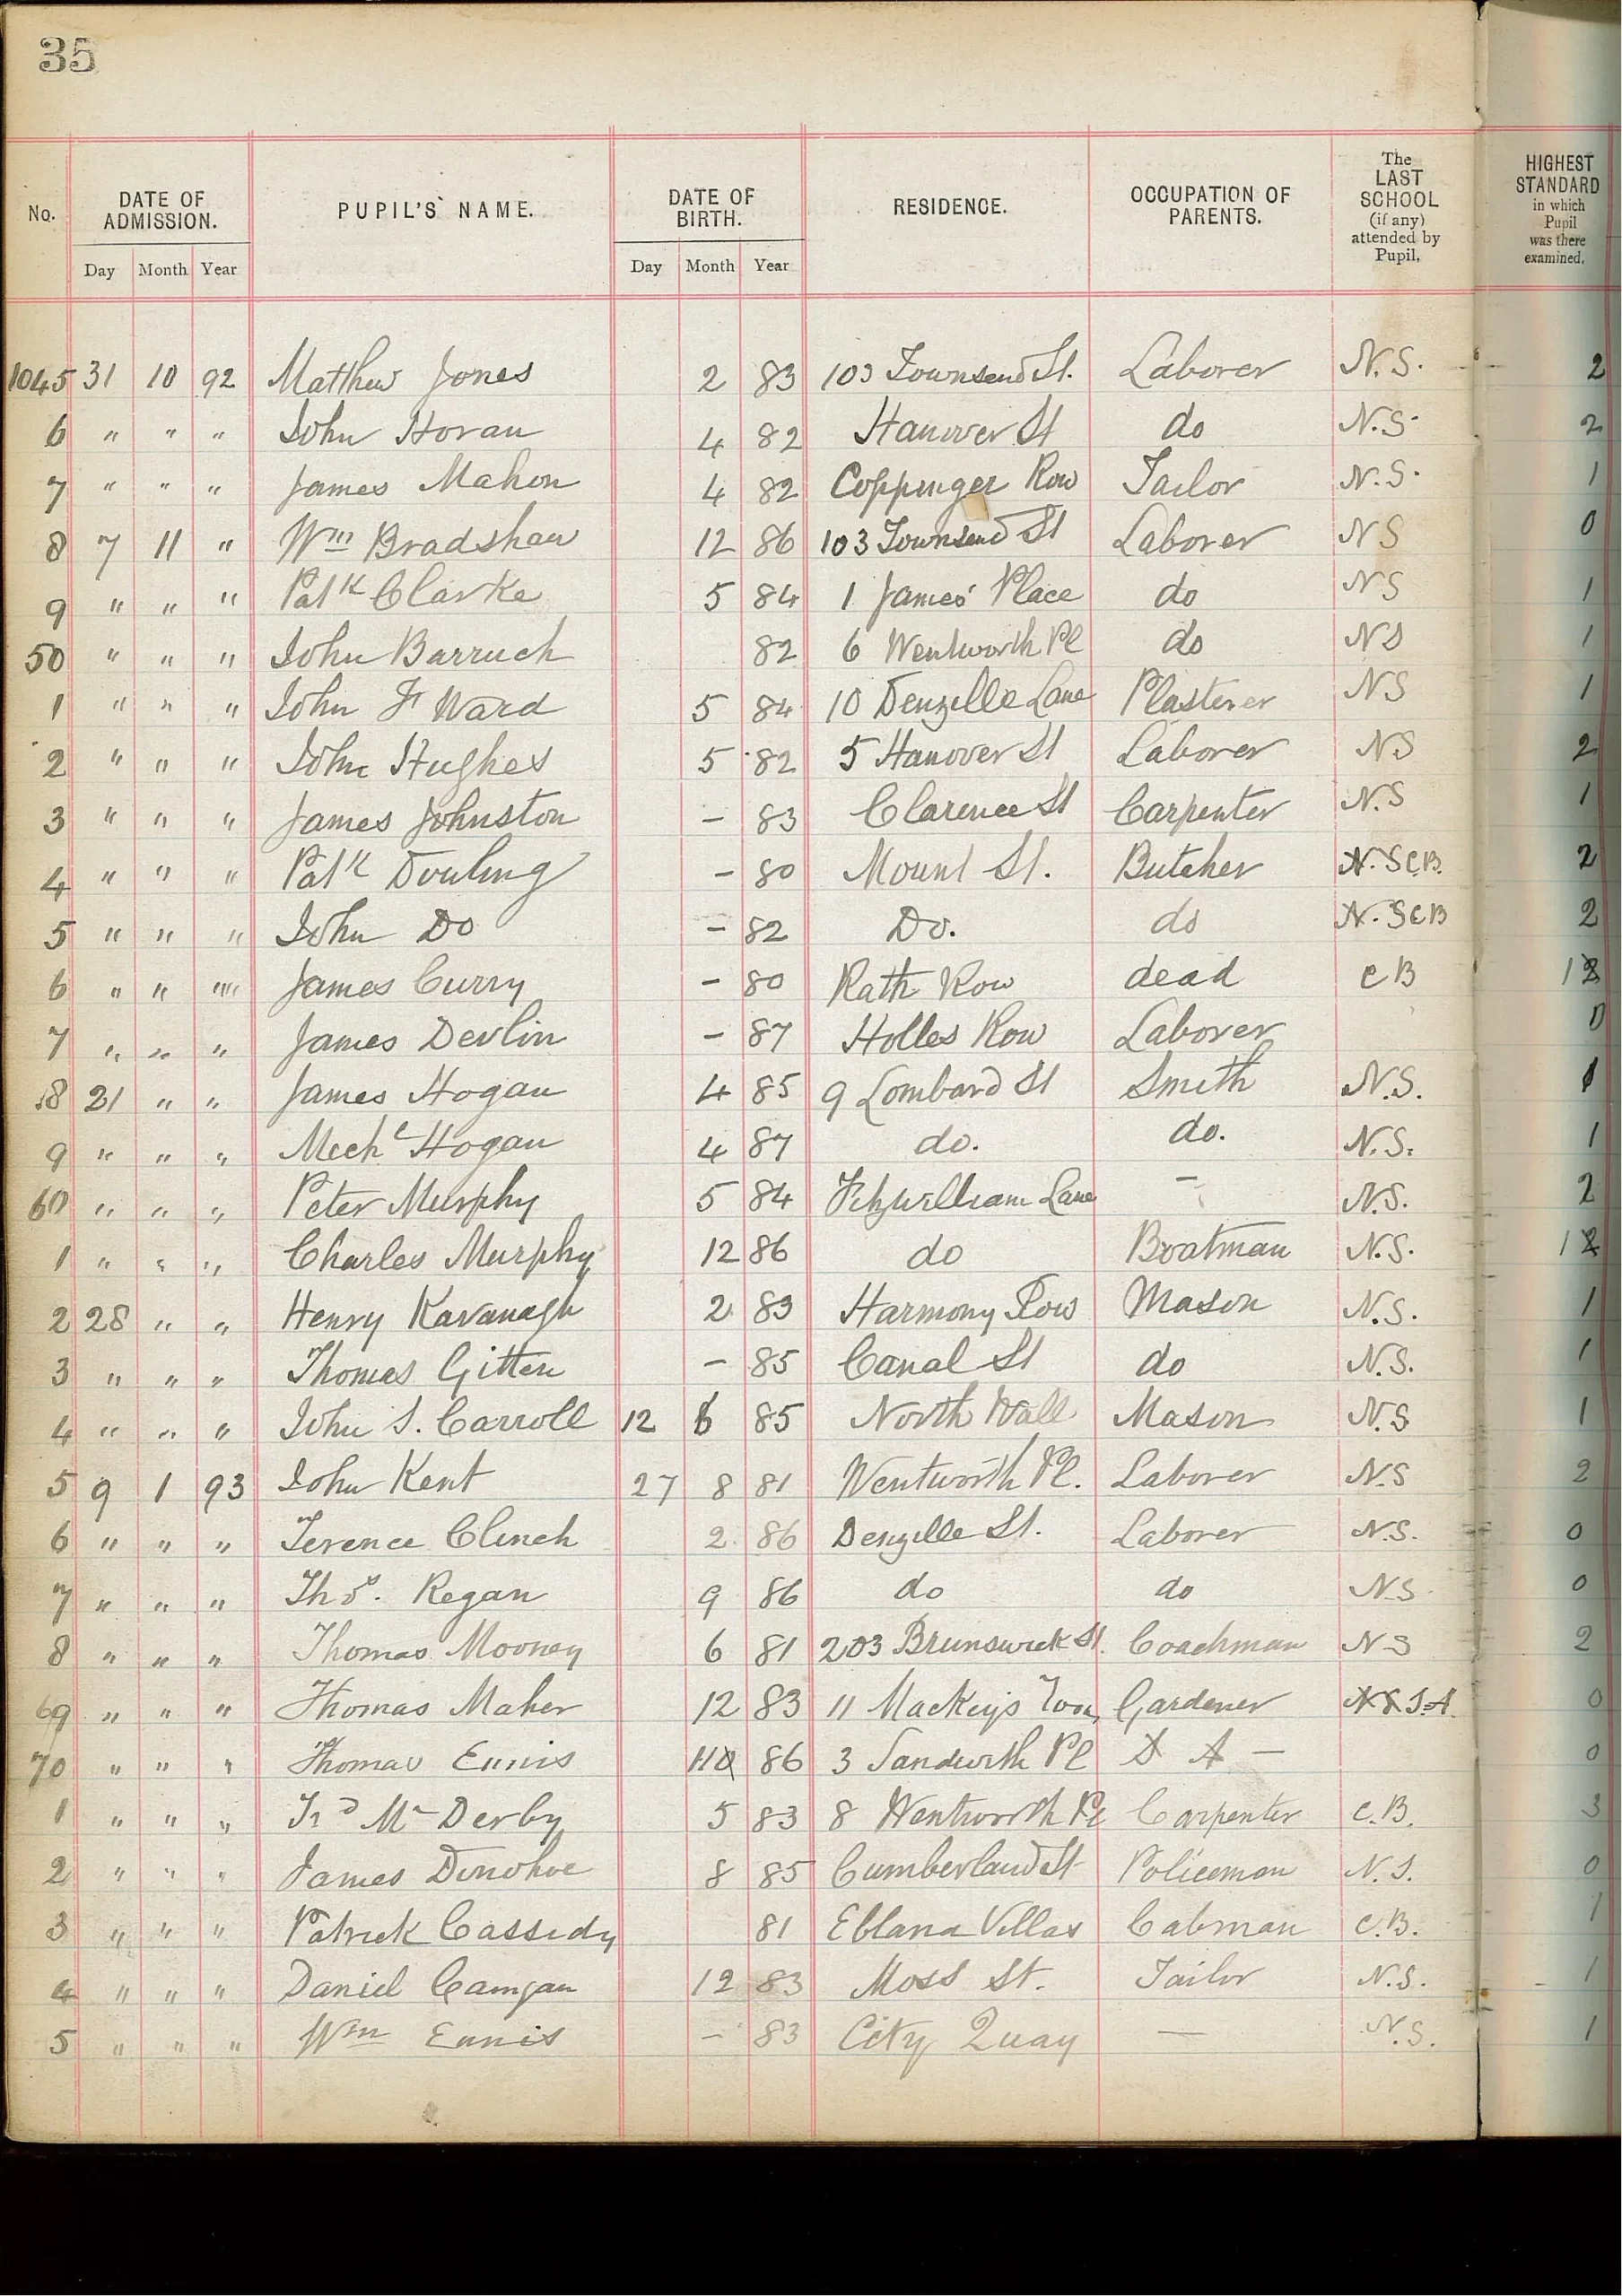 35
No. DATE OF ADMISSION. PUPIL'S NAME. DATE OF BIRTH. RESIDENCE. OCCUPATION OF PARENTS. The LAST SCHOOL (if any) attended by Pupil. HIGHEST STANDARD in which Pupil was there examined.
Day Month Year Day Month Year
1045 31 10 92 Matthew Jones 2 83 103 Townsend St. Laborer N.S. 2
6 " " " John Horan 4 82 Hanover St do N.S. 2
7 " " " James Mahon 4 82 Coppinger Row Tailor N.S. 1
8 7 11 " Wm Bradshaw 12 86 103 Townsend St Laborer NS 0
9 " " " Patk Clarke 5 84 1 James' Place do NS 1
50 " " " John Barruch 82 6 Wentworth Pl do NS 1
1 " " " John Fr Ward 5 84 10 Denzille Lane Plasterer NS 1
2 " " " John Hughes 5 82 5 Hanover St Laborer NS 2
3 " " " James Johnston - 83 Clarence St Carpenter N.S 1
4 " " " Patk Dowling - 80 Mount St. Butcher N.S C.B. 2
5 " " " John Do - 82 Do. do N.S C B 2
6 " " "" James Curry - 80 Rath Row dead C B 1
7 " " " James Devlin - 87 Holles Row Laborer 0
8 21 " " James Hogan 4 85 9 Lombard St Smith N.S. 1
9 " " " Michl Hogan 4 87 do. do. N.S. 1
60 " " " Peter Murphy 5 84 Fitzwilliam Lane - N.S. 2
1 " " " Charles Murphy 12 86 do Boatman N.S. 1
2 28 " " Henry Kavanagh 2 83 Harmony Row Mason N.S. 1
3 " " " Thomas Gitten - 85 Canal St do N.S. 1
4 " " " John S. Carroll 12 6 85 North Wall Mason N.S 1
5 9 1 93 John Kent 27 8 81 Wentworth Pl. Laborer N.S 2
6 " " " Terence Clinch 2 86 Denzille St. Laborer N.S. 0
7 " " " Thos. Regan 9 86 do do N.S. 0
8 " " " Thomas Mooney 6 81 203 Brunswick St. Coachman NS 2
69 " " " Thomas Maher 12 83 11 Mackeys Gardener 0
70 " " " Thomas Ennis 86 3 Sandwith Pl - 0
1 " " " Mc Derby 5 83 8 Wentworth Pl Carpenter C.B. 3
2 " " " James Donohoe 8 85 Cumberland St Policeman N.S. 0
3 " " " Patrick Cassidy 81 Eblana Villas Cabman C.B. 1
4 " " " Daniel 12 83 Moss St. Tailor N.S. 1
5 " " " Wm Ennis - 83 City Quay - N.S. 1